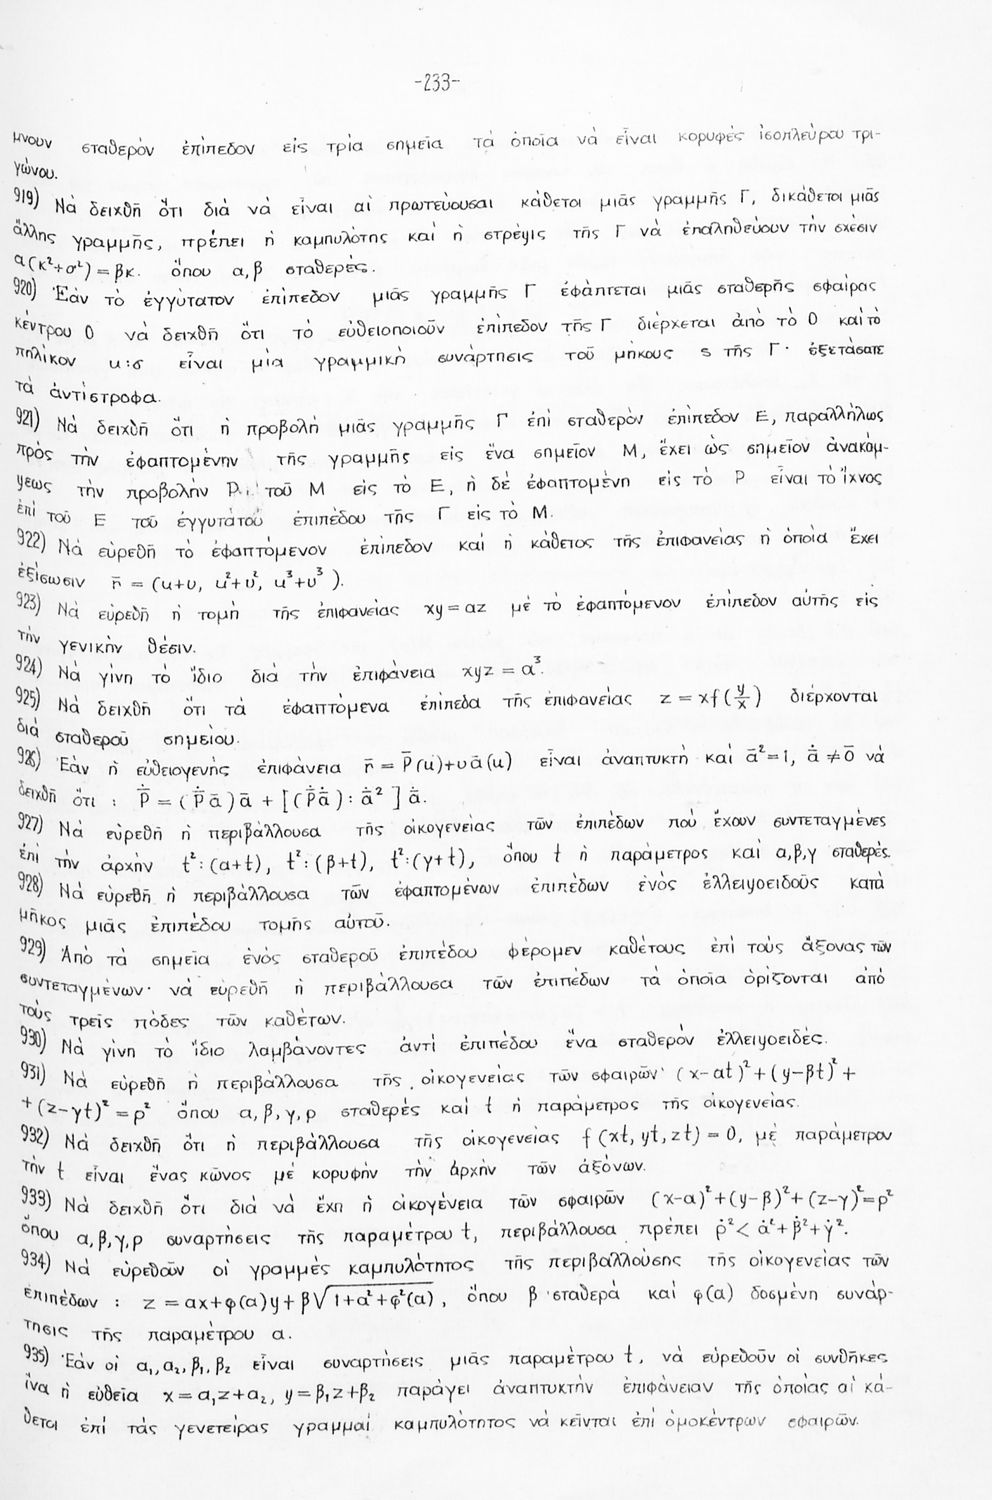 -233-
μνουν σταθερὸν ἐπίπεδον εἰς τρία σημεῖα τὰ ὁποῖα νὰ εἶναι κορυφὲς ἰσοπλεύρου τρι-
γώνου.
919) Νὰ δειχθῆ ὅτι διὰ νὰ εἶναι αἱ πρωτεύουσαι κάθετοι μιᾶς γραμμῆς Γ, δικάθετοι μιᾶς
ἄλλης γραμμῆς, πρέπει ἡ καμπυλότης καὶ ἡ στρέψις τῆς Γ νὰ ἐπαληθεύουν τὴν σχέσιν
α(κ²+σ²)=βκ. ὅπου α,β σταθερές.
920) Ἐὰν τὸ ἐγγύτατον ἐπίπεδον μιᾶς γραμμῆς Γ ἐφάπτεται μιᾶς σταθερῆς σφαίρας
κέντρου Ο νὰ δειχθῆ ὅτι τὸ εὐθειοποιοῦν ἐπίπεδον τῆς Γ διέρχεται ἀπὸ τὸ Ο καὶ τὸ
πηλίκον κ:σ εἶναι μία γραμμικὴ συνάρτησις τοῦ μήκους s τῆς Γ· ἐξετάσατε
τὰ ἀντίστροφα.
921) Νὰ δειχθῆ ὅτι ἡ προβολὴ μιᾶς γραμμῆς Γ ἐπὶ σταθερὸν ἐπίπεδον Ε, παραλλήλως
πρὸς τὴν ἐφαπτομένην τῆς γραμμῆς εἰς ἕνα σημεῖον Μ, ἔχει ὡς σημεῖον ἀνακάμ-
ψεως τὴν προβολὴν Ρ τοῦ Μ εἰς τὸ Ε, ἡ δὲ ἐφαπτομένη εἰς τὸ Ρ εἶναι τὸ ἴχνος
ἐπὶ τοῦ Ε τοῦ ἐγγυτάτου ἐπιπέδου τῆς Γ εἰς τὸ Μ.
922) Νὰ εὑρεθῆ τὸ ἐφαπτόμενον ἐπίπεδον καὶ ἡ κάθετος τῆς ἐπιφανείας ἡ ὁποία ἔχει
ἐξίσωσιν r̄ = (u+υ, u²+υ², u³+υ³).
923) Νὰ εὑρεθῆ ἡ τομὴ τῆς ἐπιφανείας xy=αz μὲ τὸ ἐφαπτόμενον ἐπίπεδον αὐτῆς εἰς
τὴν γενικὴν θέσιν.
924) Νὰ γίνη τὸ ἴδιο διὰ τὴν ἐπιφάνεια xyz = α³.
925) Νὰ δειχθῆ ὅτι τὰ ἐφαπτόμενα ἐπίπεδα τῆς ἐπιφανείας z = xf(y/x) διέρχονται
διὰ σταθεροῦ σημείου.
926) Ἐὰν ἡ εὐθειογενὴς ἐπιφάνεια r̄ = P̄(u)+υᾱ(u) εἶναι ἀναπτυκτὴ καὶ ᾱ²=1, ᾱ̇ ≠ 0̄ νὰ
δειχθῆ ὅτι : P̄̇ = (P̄̇ᾱ)ᾱ + [(P̄̇ᾱ̇):ᾱ̇²]ᾱ̇.
927) Νὰ εὑρεθῆ ἡ περιβάλλουσα τῆς οἰκογενείας τῶν ἐπιπέδων ποὺ ἔχουν συντεταγμένες
ἐπὶ τὴν ἀρχὴν t²:(α+t), t²:(β+t), t²:(γ+t), ὅπου t ἡ παράμετρος καὶ α,β,γ σταθερές.
928) Νὰ εὑρεθῆ ἡ περιβάλλουσα τῶν ἐφαπτομένων ἐπιπέδων ἑνὸς ἐλλειψοειδοῦς κατὰ
μῆκος μιᾶς ἐπιπέδου τομῆς αὐτοῦ.
929) Ἀπὸ τὰ σημεῖα ἑνὸς σταθεροῦ ἐπιπέδου φέρομεν καθέτους ἐπὶ τοὺς ἄξονας τῶν
συντεταγμένων· νὰ εὑρεθῆ ἡ περιβάλλουσα τῶν ἐπιπέδων τὰ ὁποῖα ὁρίζονται ἀπὸ
τοὺς τρεῖς πόδες τῶν καθέτων.
930) Νὰ γίνη τὸ ἴδιο λαμβάνοντες ἀντὶ ἐπιπέδου ἕνα σταθερὸν ἐλλειψοειδές.
931) Νὰ εὑρεθῆ ἡ περιβάλλουσα τῆς οἰκογενείας τῶν σφαιρῶν (x-αt)²+(y-βt)²+
+(z-γt)²=ρ² ὅπου α,β,γ,ρ σταθερὲς καὶ t ἡ παράμετρος τῆς οἰκογενείας.
932) Νὰ δειχθῆ ὅτι ἡ περιβάλλουσα τῆς οἰκογενείας f(xt, yt, zt)=0, μὲ παράμετρον
τὴν t εἶναι ἕνας κῶνος μὲ κορυφὴν τὴν ἀρχὴν τῶν ἀξόνων.
933) Νὰ δειχθῆ ὅτι διὰ νὰ ἔχη ἡ οἰκογένεια τῶν σφαιρῶν (x-α)²+(y-β)²+(z-γ)²=ρ²
ὅπου α,β,γ,ρ συναρτήσεις τῆς παραμέτρου t, περιβάλλουσα πρέπει ρ̇²< α̇²+β̇²+γ̇².
934) Νὰ εὑρεθοῦν οἱ γραμμὲς καμπυλότητος τῆς περιβαλλούσης τῆς οἰκογενείας τῶν
ἐπιπέδων : z = αx+φ(α)y+β√(1+α²+φ²(α)), ὅπου β σταθερὰ καὶ φ(α) δοσμένη συνάρ-
τησις τῆς παραμέτρου α.
935) Ἐὰν οἱ α₁,α₂,β₁,β₂ εἶναι συναρτήσεις μιᾶς παραμέτρου t, νὰ εὑρεθοῦν οἱ συνθῆκες
ἵνα ἡ εὐθεῖα x=α₁z+α₂, y=β₁z+β₂ παράγει ἀναπτυκτὴν ἐπιφάνειαν τῆς ὁποίας αἱ κά-
θετοι ἐπὶ τὰς γενετείρας γραμμαὶ καμπυλότητος νὰ κεῖνται ἐπὶ ὁμοκέντρων σφαιρῶν.